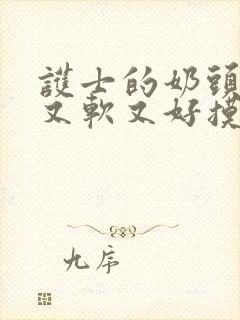 護士的奶頭
又軟又好摸
九序